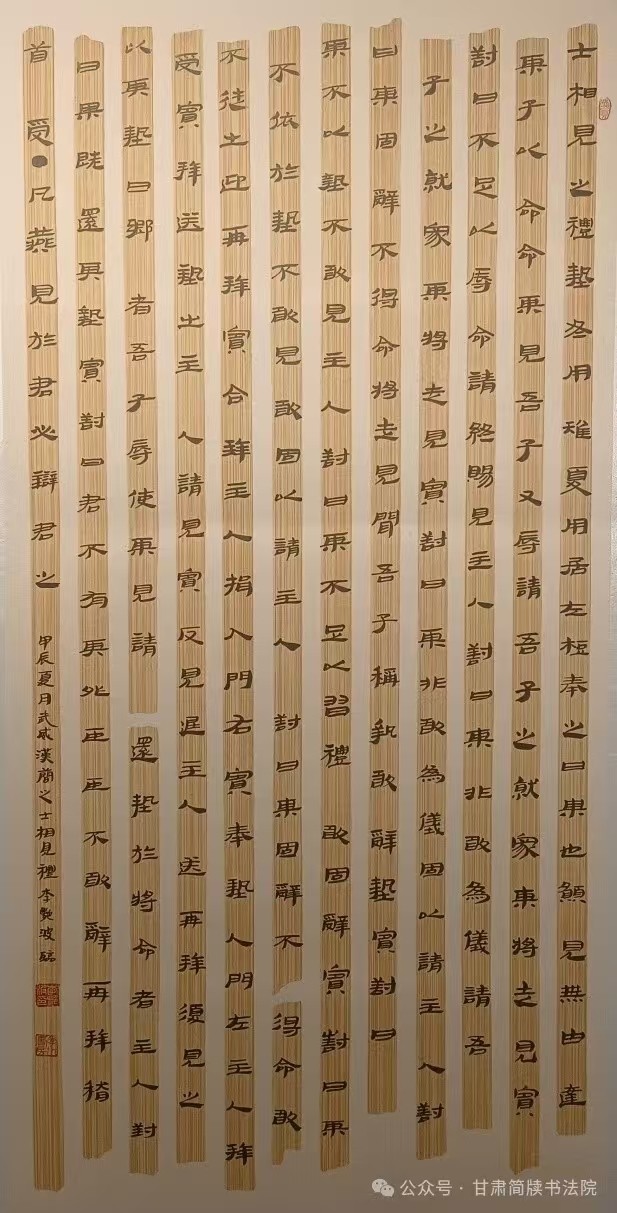 士相見之禮摯冬用雉夏用居左梪奉之曰某也願見無由達
某子以命命某見吾子又辱請吾子之就家某將走見賓
對曰不足以辱命請終賜見主人對曰某非敢為儀請吾
子之就家某將走見賓對曰某非敢為儀固以請主人對
曰某固辭不得命將走見聞吾子稱執敢辭摯賓對曰
某不以摯不敢見主人對曰某不足以習禮敢固辭賓對曰某
不依於摯不敢見敢固以請主人對曰某固辭不得命敢
不從之迎再拜賓合拜主人揖入門右賓奉摯入門左主人拜
受賓拜送摯出主人請見賓反見退主人送再拜復見之
以其摯曰鄉者吾子辱使某見請還摯於將命者主人對
曰某既還其摯賓對曰君不有其外臣臣不敢辭再拜稽
首受●凡燕見於君必辯君之
甲辰夏月武威漢簡之士相見禮李艷波臨
公众号·甘肃简牍书法院